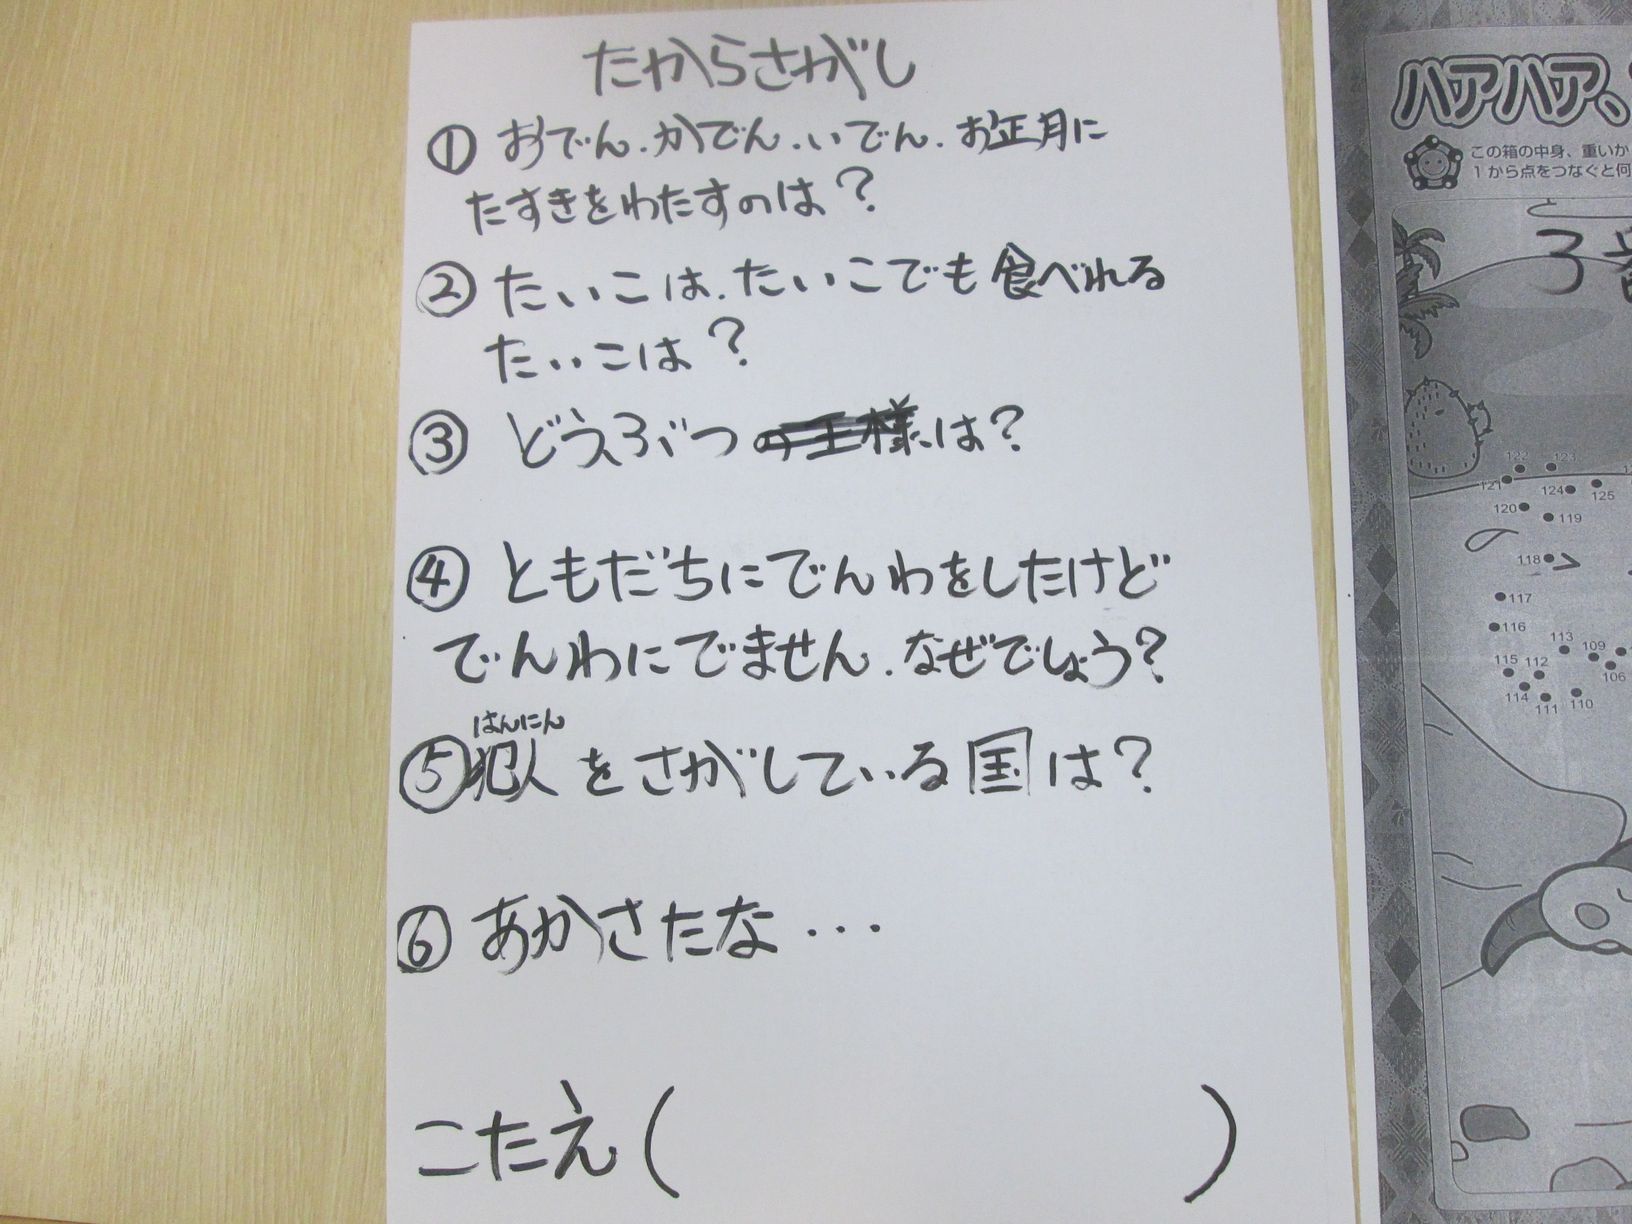 たからさがし
① おでん.かでん.いでん.お正月に
たすきをわたすのは？
② たいこは.たいこでも食べれる
たいこは？
③ どうぶつの王様は？
④ ともだちにでんわをしたけど
でんわにでません.なぜでしょう？
はんにん
⑤犯人をさがしている国は？
⑥ あかさたな...
こたえ(　　　　)
ハアハア、
この箱の中身、重いか
1から点をつなぐと何
3番
122
123
121
124
125
120
119
118
117
116
113
109
115
112
106
114
111
110